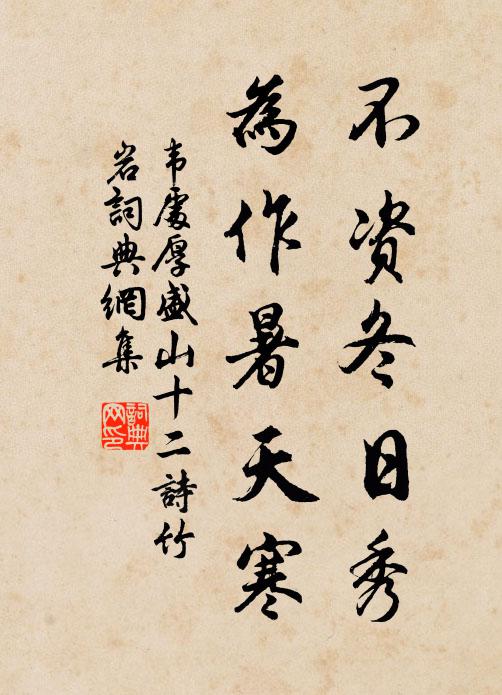 不资冬日秀
為作暑天寒
韦處厚盛山十二詩竹
岩詞典網集
詞典
网印